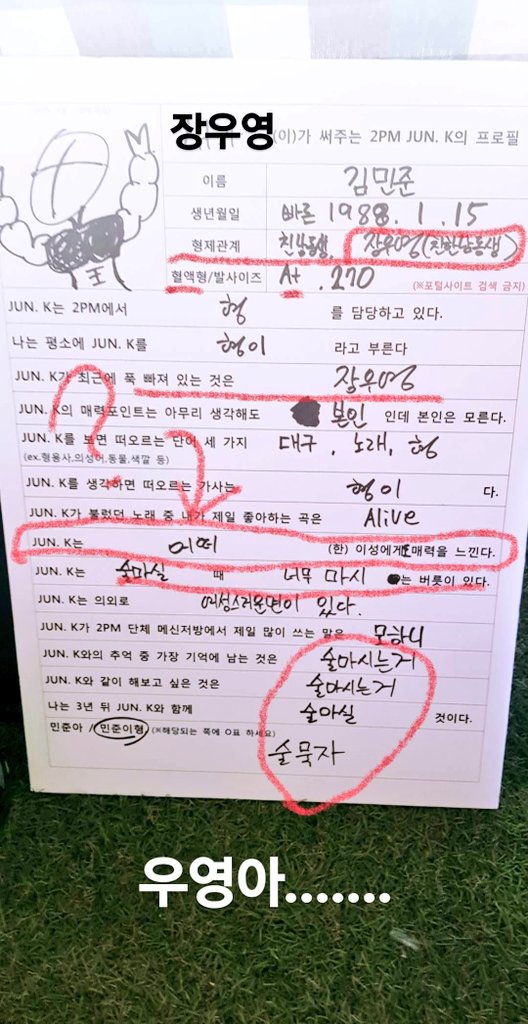 장우영(이)가 써주는 2PM JUN. K의 프로필
이름 김민준
생년월일 빠른 1988. 1. 15
형제관계 친남동생 장우영(친한남동생)
혈액형/발사이즈 A+ . 270 (※포털사이트 검색 금지)
JUN. K는 2PM에서 형 를 담당하고 있다.
나는 평소에 JUN. K를 형이 라고 부른다
JUN. K가 최근에 푹 빠져 있는 것은 장우영
JUN. K의 매력포인트는 아무리 생각해도 본인 인데 본인은 모른다.
JUN. K를 보면 떠오르는 단어 세 가지 대구, 노래, 형
(ex.형용사,의성어,동물,색깔 등)
JUN. K를 생각하면 떠오르는 가사는 형이 다.
JUN. K가 불렀던 노래 중 내가 제일 좋아하는 곡은 Alive
JUN. K는 어떠 (한) 이성에게 매력을 느낀다.
JUN. K는 술마실 때 너무 마시는 버릇이 있다.
JUN. K는 의외로 여성스러운면이 있다.
JUN. K가 2PM 단체 메신저방에서 제일 많이 쓰는 말은 모하니
JUN. K와의 추억 중 가장 기억에 남는 것은 술마시는거
JUN. K와 같이 해보고 싶은 것은 술마시는거
나는 3년 뒤 JUN. K와 함께 술마실 것이다.
민준아 / 민준이형 (※해당되는 쪽에 O표 하세요) 술묵자
우영아.......